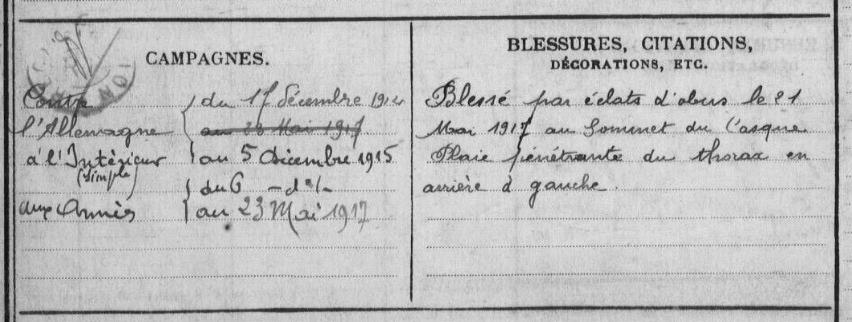 CAMPAGNES.
Contre du 17 décembre 191
l'Allemagne au 23 Mai 1917
à l'Intérieur au 5 Décembre 1915
(Simple)
du 6 -d°-
aux Armées au 23 Mai 1917
BLESSURES, CITATIONS,
DÉCORATIONS, ETC.
Blessé par éclats d'obus le 21
Mai 1917 au Sommet du Casque
Plaie pénétrante du thorax en
arrière à gauche.